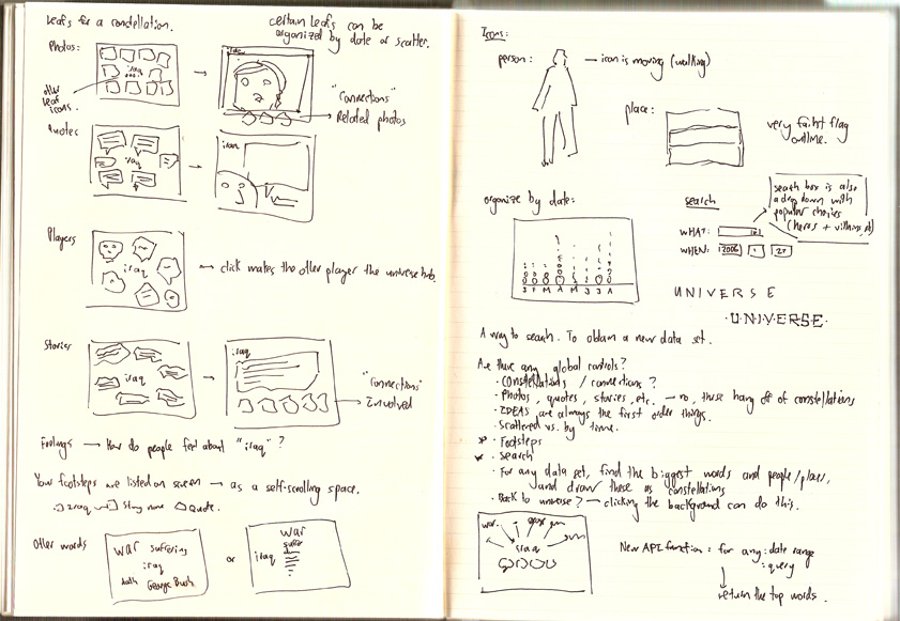 Leafs for a constellation.
certain leafs can be
organized by date or scatter.
Photos:
iraq
other
leaf
icons.
iraq
"connections"
Related photos
Quotes
iraq
iraq
Players
iraq
click makes the other player the universe hub.
Stories
iraq
iraq
"connections"
Involved
Feelings — How do people feel about "iraq"?
Your footsteps are listed on screen — as a self-scrolling space.
iraq
Story name
Quote.
Other words
war suffering
iraq
George Bush
or
war
suffer
iraq
Icons:
person:
— icon is moving (walking)
place:
very faint flag
outline.
organize by date:
J F M A M J J A
search
search box is also
a drop down with
popular choices
(heros + villains etc)
WHAT:
WHEN: 2006 1 27
UNIVERSE
UNIVERSE
A way to search. To obtain a new data set.
Are there any global controls?
· Constellations / connections?
· Photos, quotes, stories, etc. — no, these hang off of constellations
· IDEAS are always the first order things.
· Scattered vs. by time.
* Footsteps
· Search
· For any data set, find the biggest words and people/places,
and draw these as constellations
· Back to universe? — clicking the background can do this.
war
iraq
New API function = for any: date range
: query
return the top words.